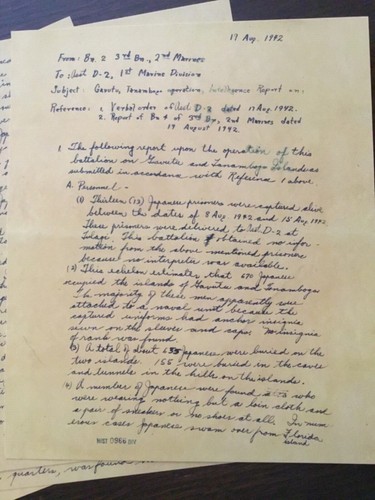 17 Aug. 1942
From: Bn. 2 3rd Bn., 2nd Marines
To: Asst D-2, 1st Marine Division
Subject: Gavutu, Tanambogo operation, Intelligence Report on.
Reference: 1. Verbal order of Asst. D-2 dated 17 Aug. 1942.
2. Report of Bn 4 of 3rd Bn, 2nd Marines dated
17 August 1942.
1. The following report upon the operation of this
battalion on Gavutu and Tanambogo Islands is
submitted in accordance with Reference 1 above
A. Personnel -
(1) Thirteen (13) Japanese prisoners were captured alive
between the dates of 8 Aug 1942 and 15 Aug 1942
These prisoners were delivered to Asst D-2 at
Tulagi. This battalion obtained no infor-
mation from the above mentioned prisoners
because no interpreter was available.
(2) This echelon estimates that 670 Japanese
occupied the islands of Gavutu and Tanambogo
The majority of these men apparently were
attached to a naval unit because the
captured uniforms had anchor insignia
sewn on the sleeves and caps. No insignia
of rank was found.
(3) A total of about Japanese were buried on the
two islands. 155 were buried in the caves
and tunnels in the hills on the islands.
(4) A number of Japanese were found who
were wearing nothing but a loin cloth and
a pair of sneakers or no shoes at all. In num
erous cases Japanese swam over from Florida
island
quarters,